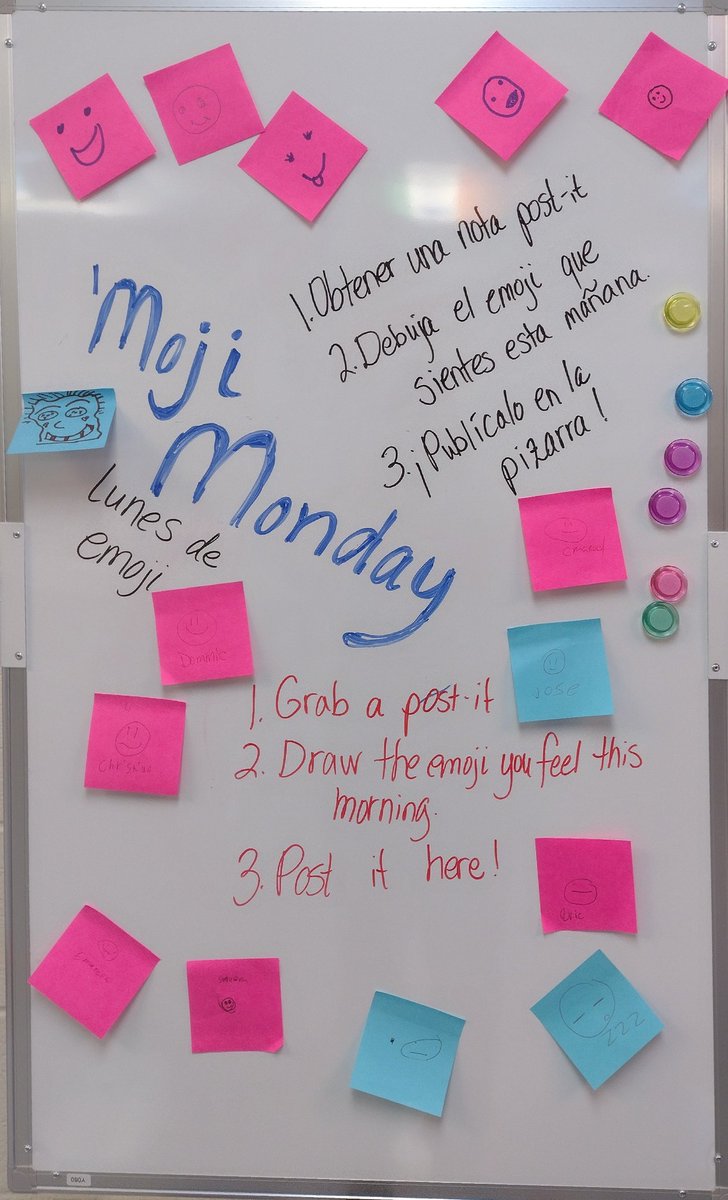 1. Obtener una nota post-it
2. Debuja el emoji que
sientes esta mañana.
3. ¡Publícalo en la
pizarra!
'Moji
Monday
lunes de
emoji
Dominic
JOSE
1. Grab a post-it
2. Draw the emoji you feel this
morning.
3. Post it here!
Eric
zzz